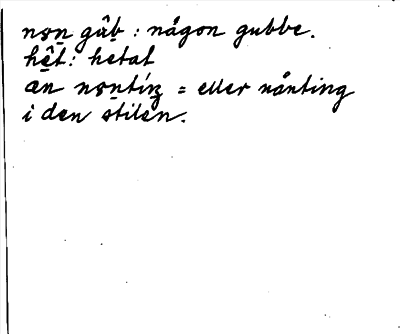 nɷn gâb : någon gubbe.
hêt : hetat
an nɷntíŋ = eller nånting
i den stilen.